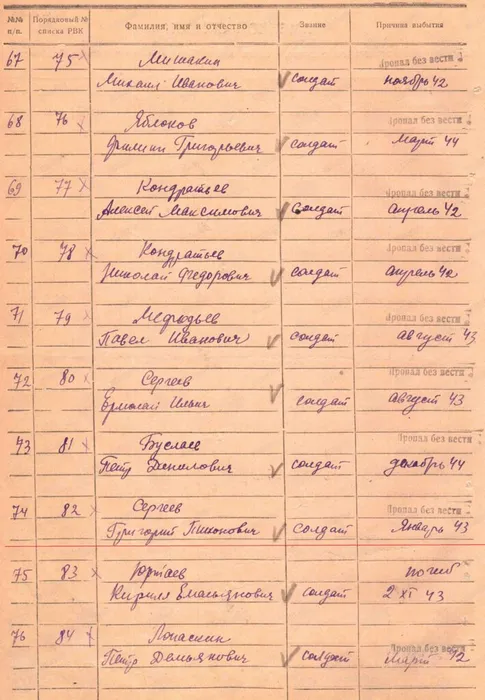 №№ п/п. Порядковый № списка РВК Фамилия, имя и отчество Звание Причина выбытия
67 75 Мишакин Пропал без вести
Михаил Иванович солдат ноябрь 42
68 76 Яблоков Пропал без вести
Филипп Григорьевич солдат Март 44
69 77 Кондратьев Пропал без вести
Алексей Максимович солдат апрель 42
70 78 Кондратьев Пропал без вести
Николай Федорович солдат апрель 42
71 79 Мефодьев Пропал без вести
Павел Иванович солдат август 43
72 80 Сергеев Пропал без вести
Ермолай Ильич солдат август 43
73 81 Буслаев Пропал без вести
Петр Данилович солдат декабрь 44
74 82 Сергеев Пропал без вести
Григорий солдат Январь 43
75 83 Юртаев погиб
Кирилл Емельянович солдат 2 XI 43
76 84 Лопаскин Пропал без вести
Петр Демьянович солдат Март 42